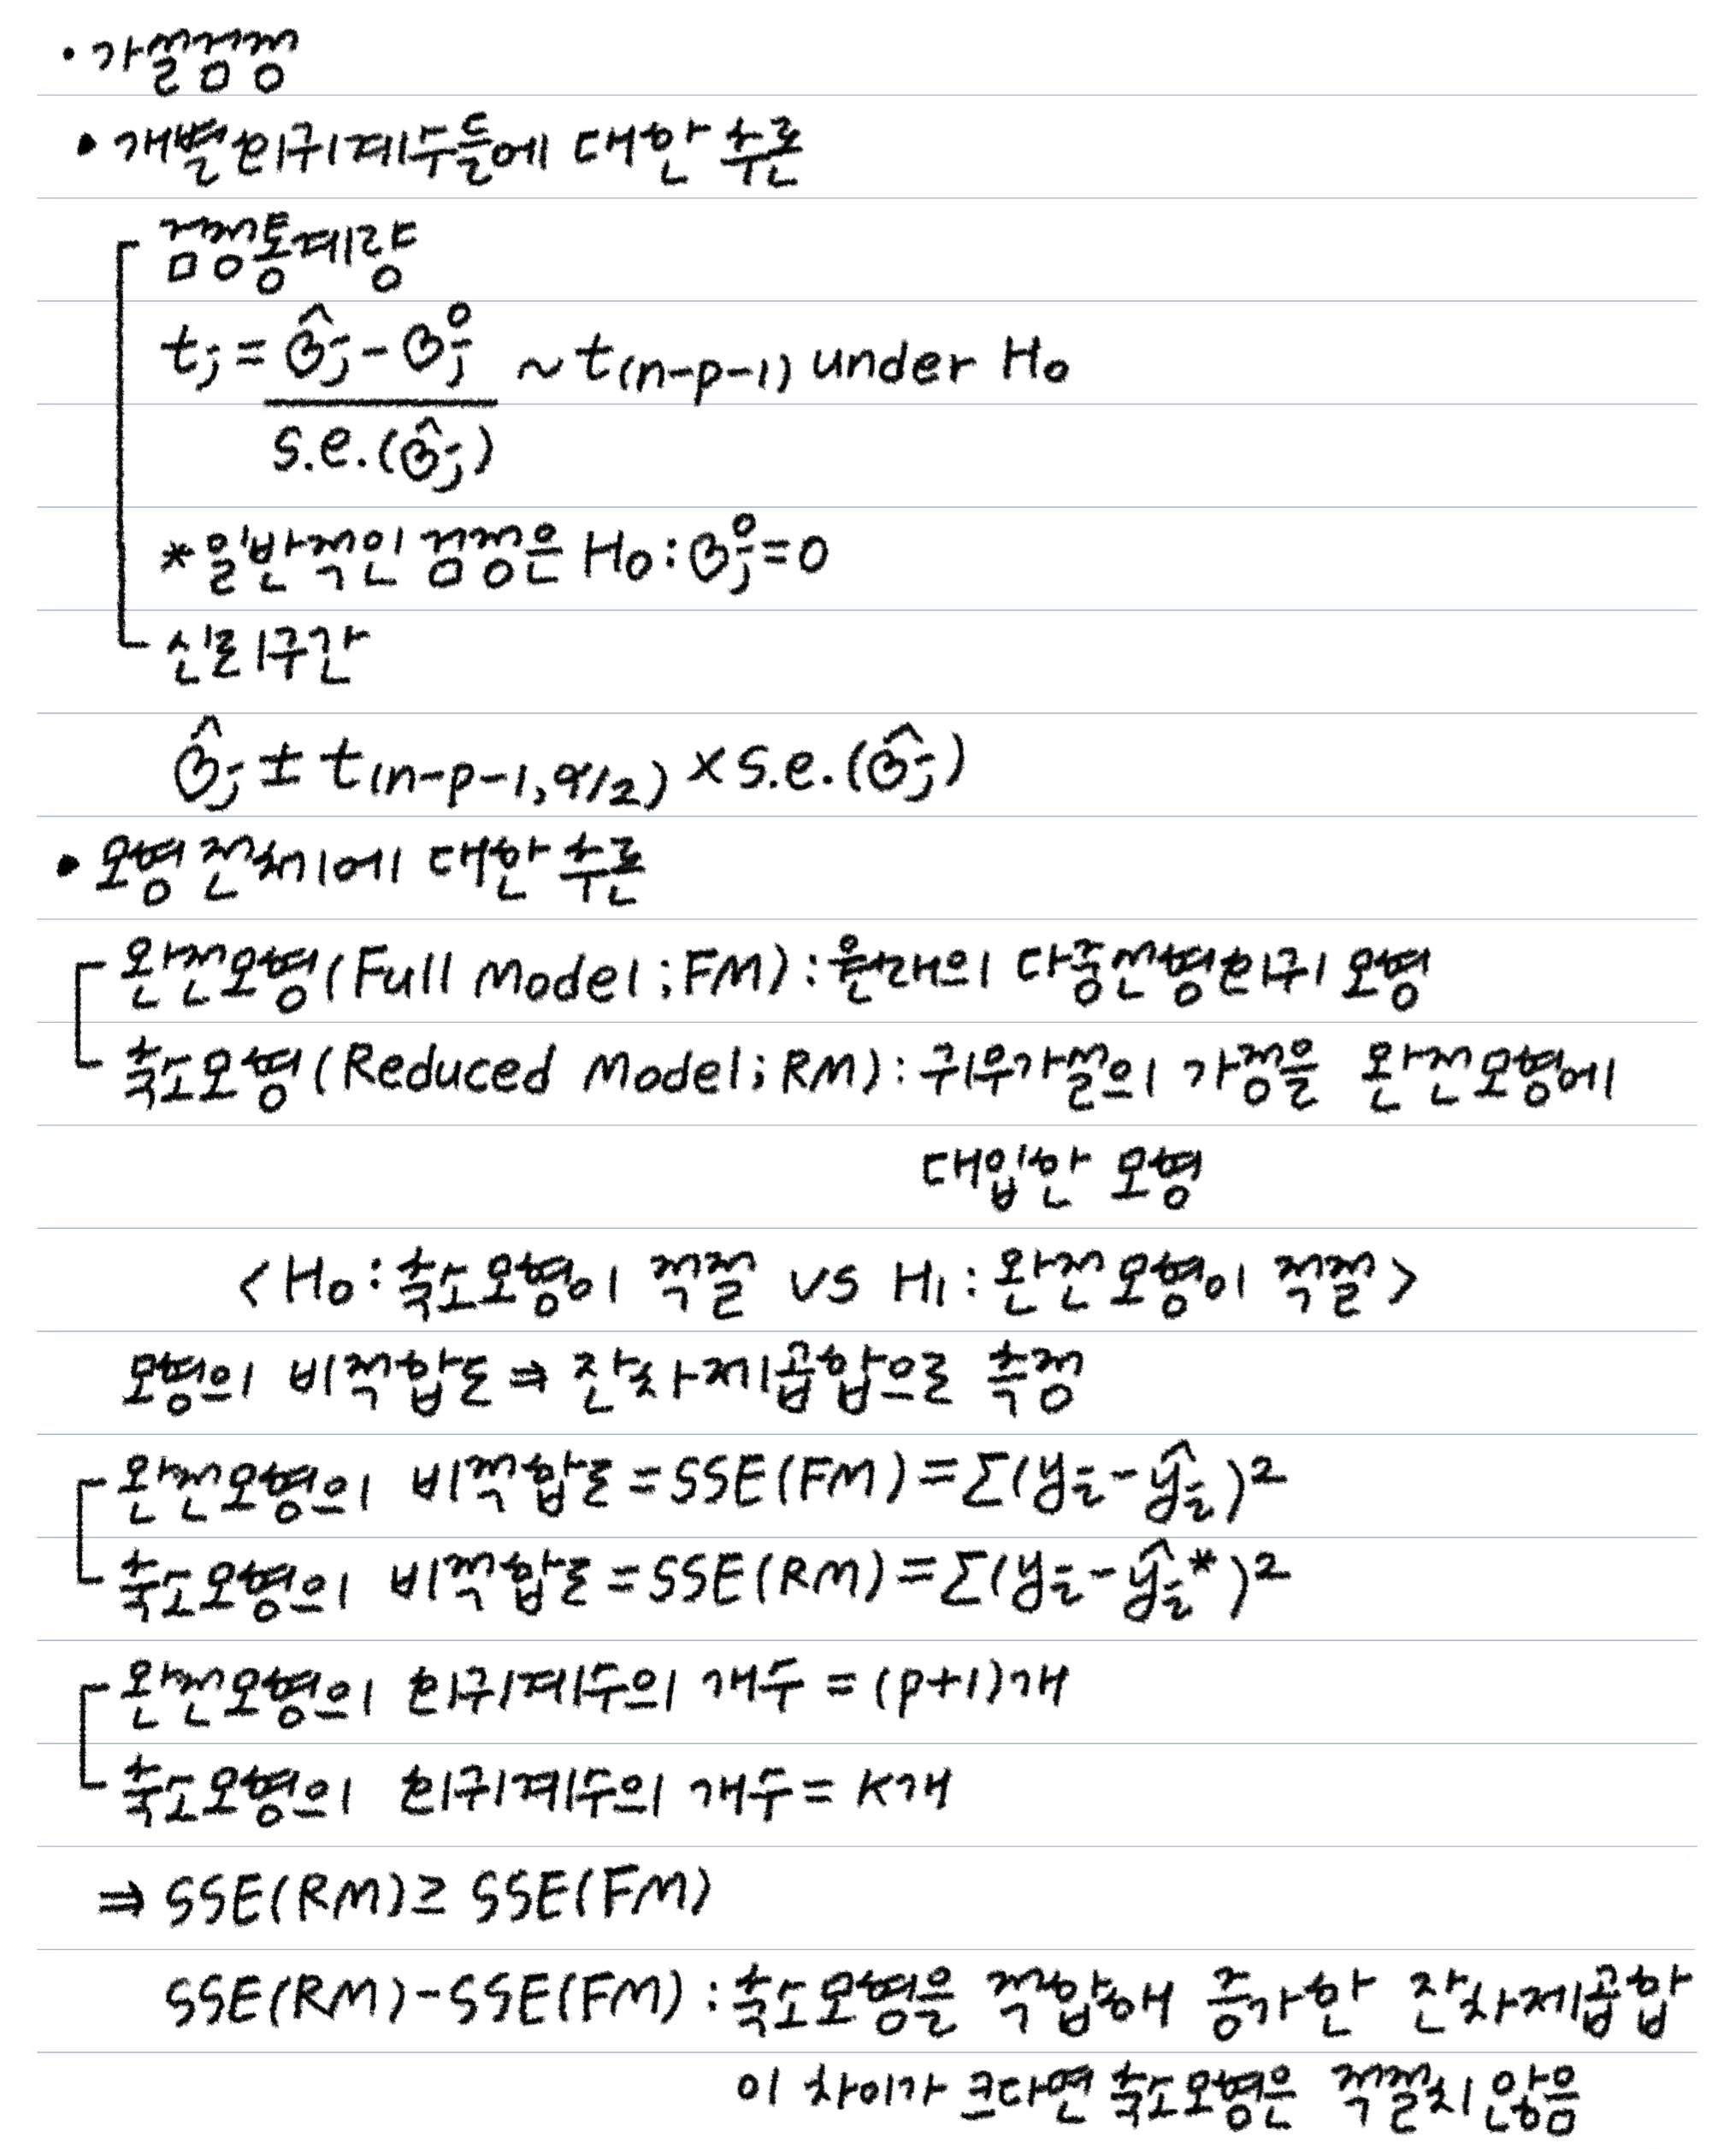 • 가설검정
• 개별회귀계수들에 대한 추론
검정통계량
tⱼ = (β̂ⱼ - βⱼ⁰) / s.e.(β̂ⱼ) ~ t(n-p-1) under H₀
*일반적인 검정은 H₀: βⱼ⁰=0
신뢰구간
β̂ⱼ ± t(n-p-1, α/2) × s.e.(β̂ⱼ)
• 모형 전체에 대한 추론
완전모형(Full Model; FM): 원래의 다중선형회귀 모형
축소모형(Reduced Model; RM): 귀무가설의 가정을 완전모형에
대입한 모형
<H₀: 축소모형이 적절 vs H₁: 완전모형이 적절>
모형의 비적합도 ⇒ 잔차제곱합으로 측정
완전모형의 비적합도 = SSE(FM) = Σ(yᵢ-ŷᵢ)²
축소모형의 비적합도 = SSE(RM) = Σ(yᵢ-ŷᵢ*)²
완전모형의 회귀계수의 개수 = (p+1)개
축소모형의 회귀계수의 개수 = K개
⇒ SSE(RM) ≥ SSE(FM)
SSE(RM)-SSE(FM): 축소모형을 적합해 증가한 잔차제곱합
이 차이가 크다면 축소모형은 적절치 않음